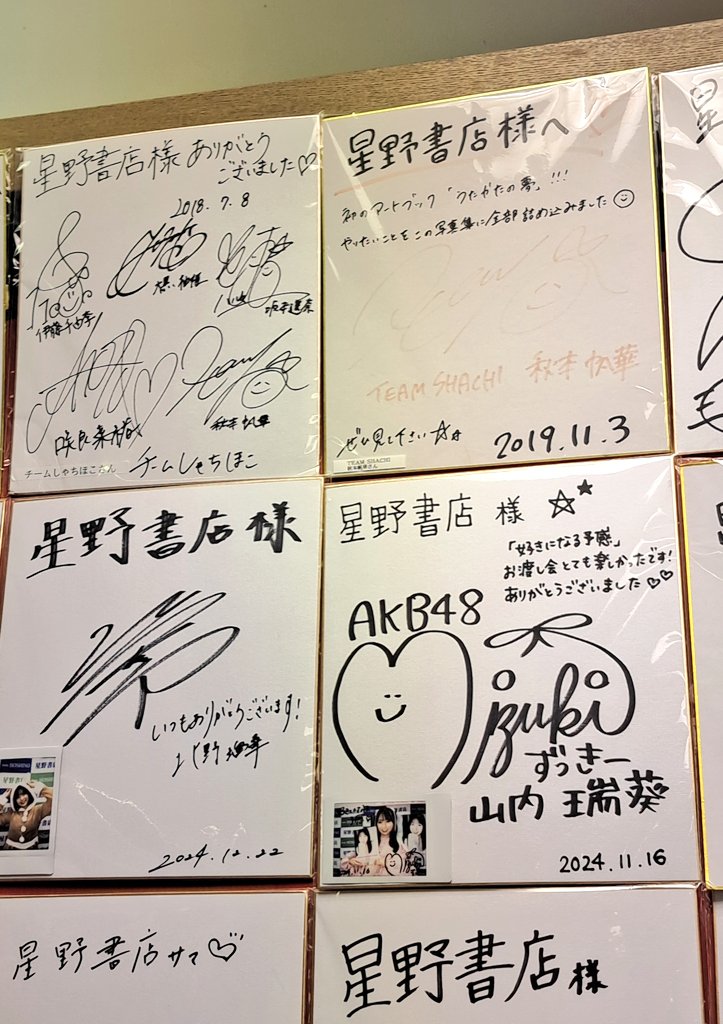 星野書店様 ありがとう
ございました♡
2018.7.8
伊藤千由李
坂本遥奈
咲良菜緒
秋本帆華
チームしゃちほこさん
チームしゃちほこ
星野書店様へ
初のアートブック「うたかたの夢」!!!
やりたいことをこの写真集に全部詰め込みました
TEAM SHACHI 秋本帆華
ぜひ見て下さい☆☆
2019.11.3
TEAM SHACHI
秋本帆華さん
星野書店様
いつもありがとうございます!
2024.12.22
星野書店 様 ☆★
「好きになる予感」
お渡し会とても楽しかったです!
ありがとうございました♡♡
AKB48
Mizuki
ずっきー
山内 瑞葵
2024.11.16
星野書店サマ♡
星野書店様